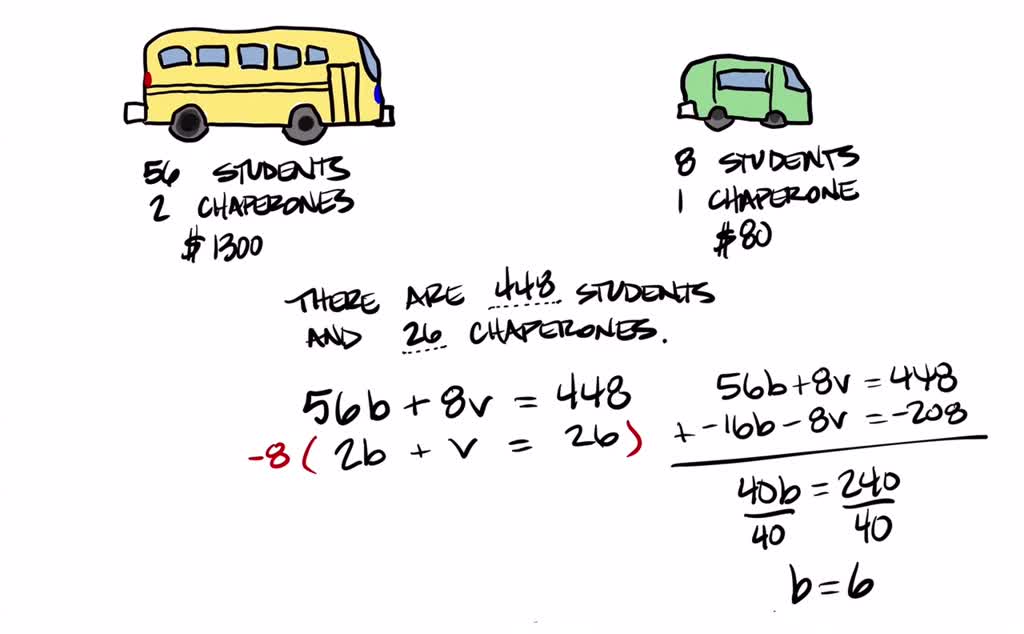 56 STUDENTS
2 CHAPERONES
$1300
8 STUDENTS
1 CHAPERONE
$80
THERE ARE 448 STUDENTS
AND 26 CHAPERONES.
56b + 8v = 448
-8( 2b + v = 26 )
56b + 8v = 448
+ -16b - 8v = -208
40b = 240
40 40
b = 6